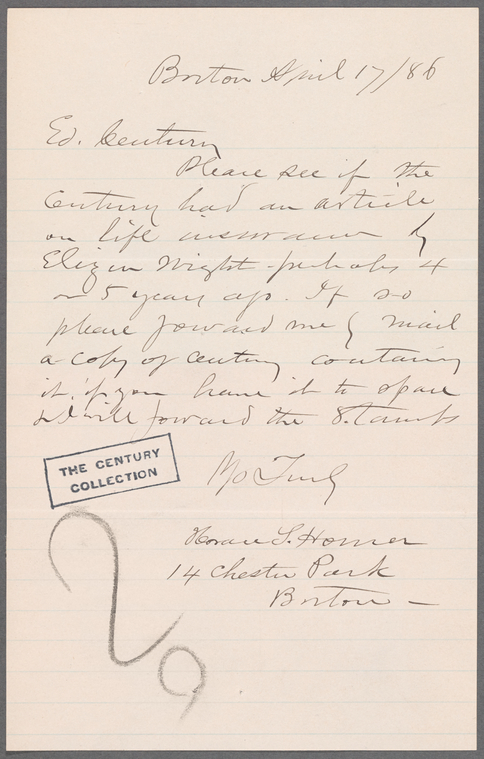 Boston April 17/86
Ed. Century
Please see if the
Century had an article
on life insurance by
Elizur Wright - perhaps 4
or 5 years ago. If so
please forward me by mail
a copy of Century containing
it, if you have it to spare
& I will forward the stamps
Yrs Truly
Horace S. Homer
14 Chester Park
Boston —
THE CENTURY
COLLECTION